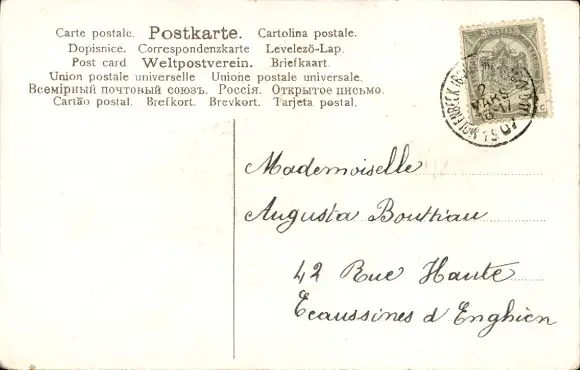 Carte postale. Postkarte. Cartolina postale.
Dopisnice. Correspondenzkarte Levelezö-Lap.
Post card Weltpostverein. Briefkaart.
Union postale universelle Unione postale universale.
Всемірный почтовый союзъ. Россія. Открытое письмо.
Cartão postal. Brefkort. Brevkort. Tarjeta postal.
2
MARS
1907
Mademoiselle
Augusta Bouttiau
42 Rue Haute
Ecaussines d'Enghien